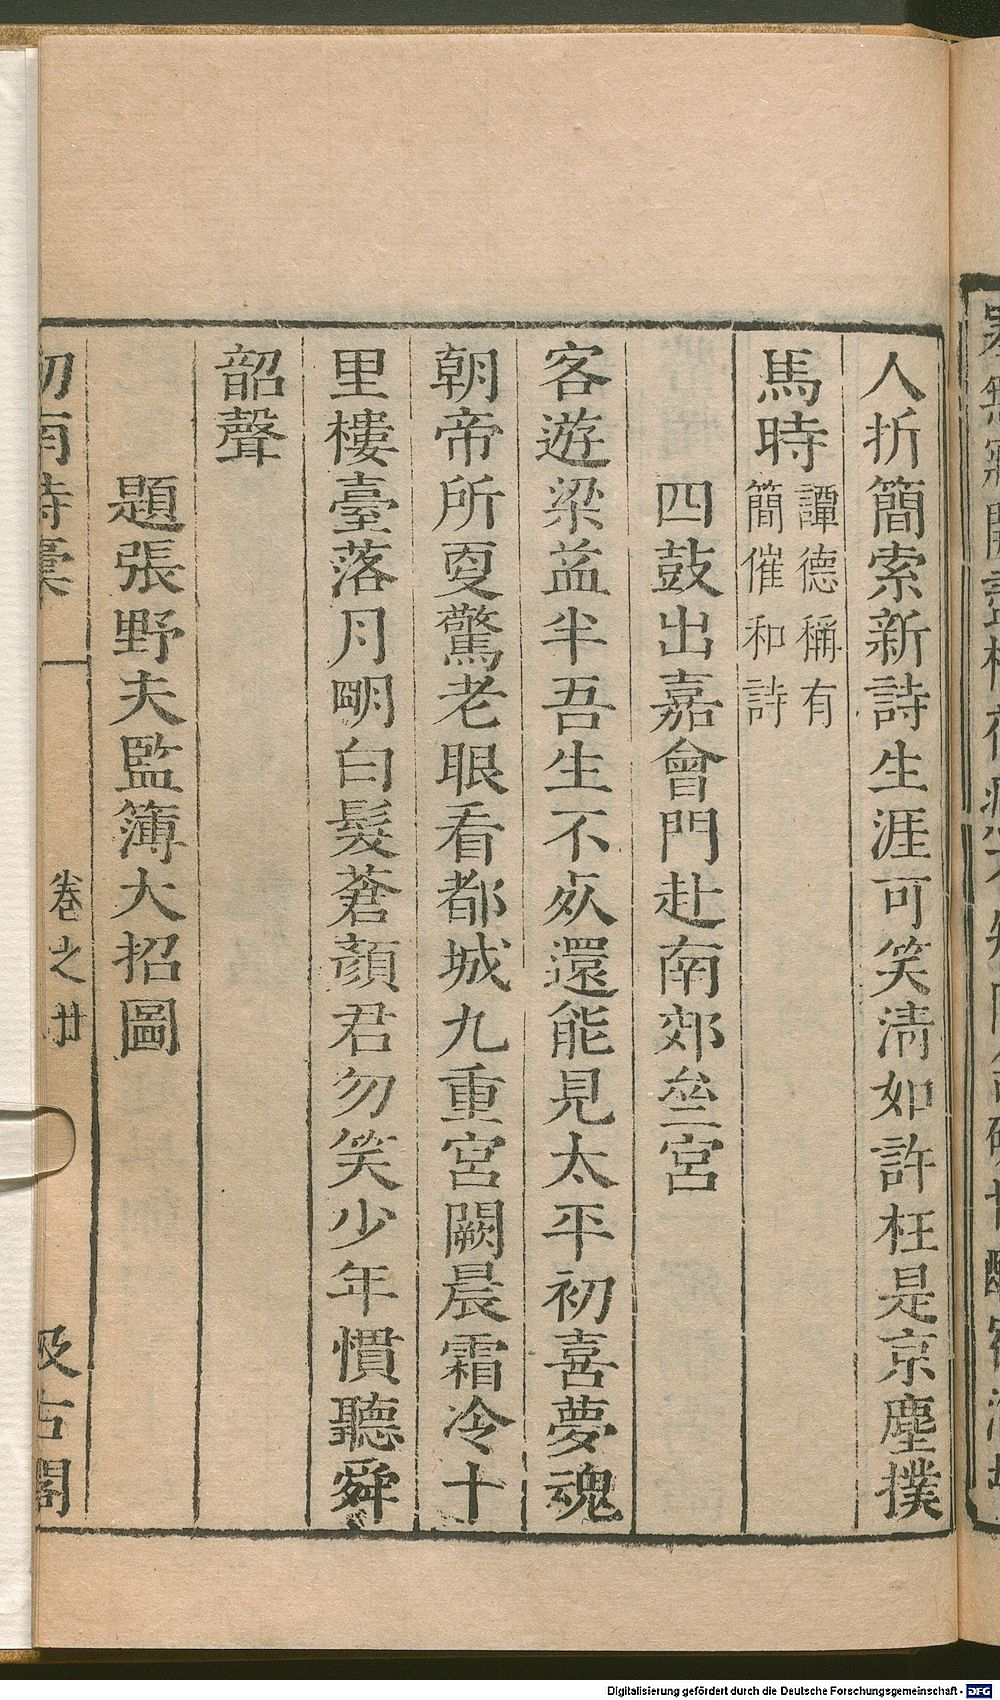 人折簡索新詩生涯可笑淸如許枉是京塵撲
馬時
譚德稱有
簡催和詩
四鼓出嘉會門赴南郊𡊮宮
客遊梁益半吾生不死還能見太平初喜夢魂
朝帝所更驚老眼看都城九重宮闕晨霜冷十
里樓臺落月明白髮蒼顏君勿笑少年慣聽舜
韶聲
題張野夫監簿大招圖
劍南詩稾
卷之廿
汲古閣
Digitalisierung gefördert durch die Deutsche Forschungsgemeinschaft - DFG